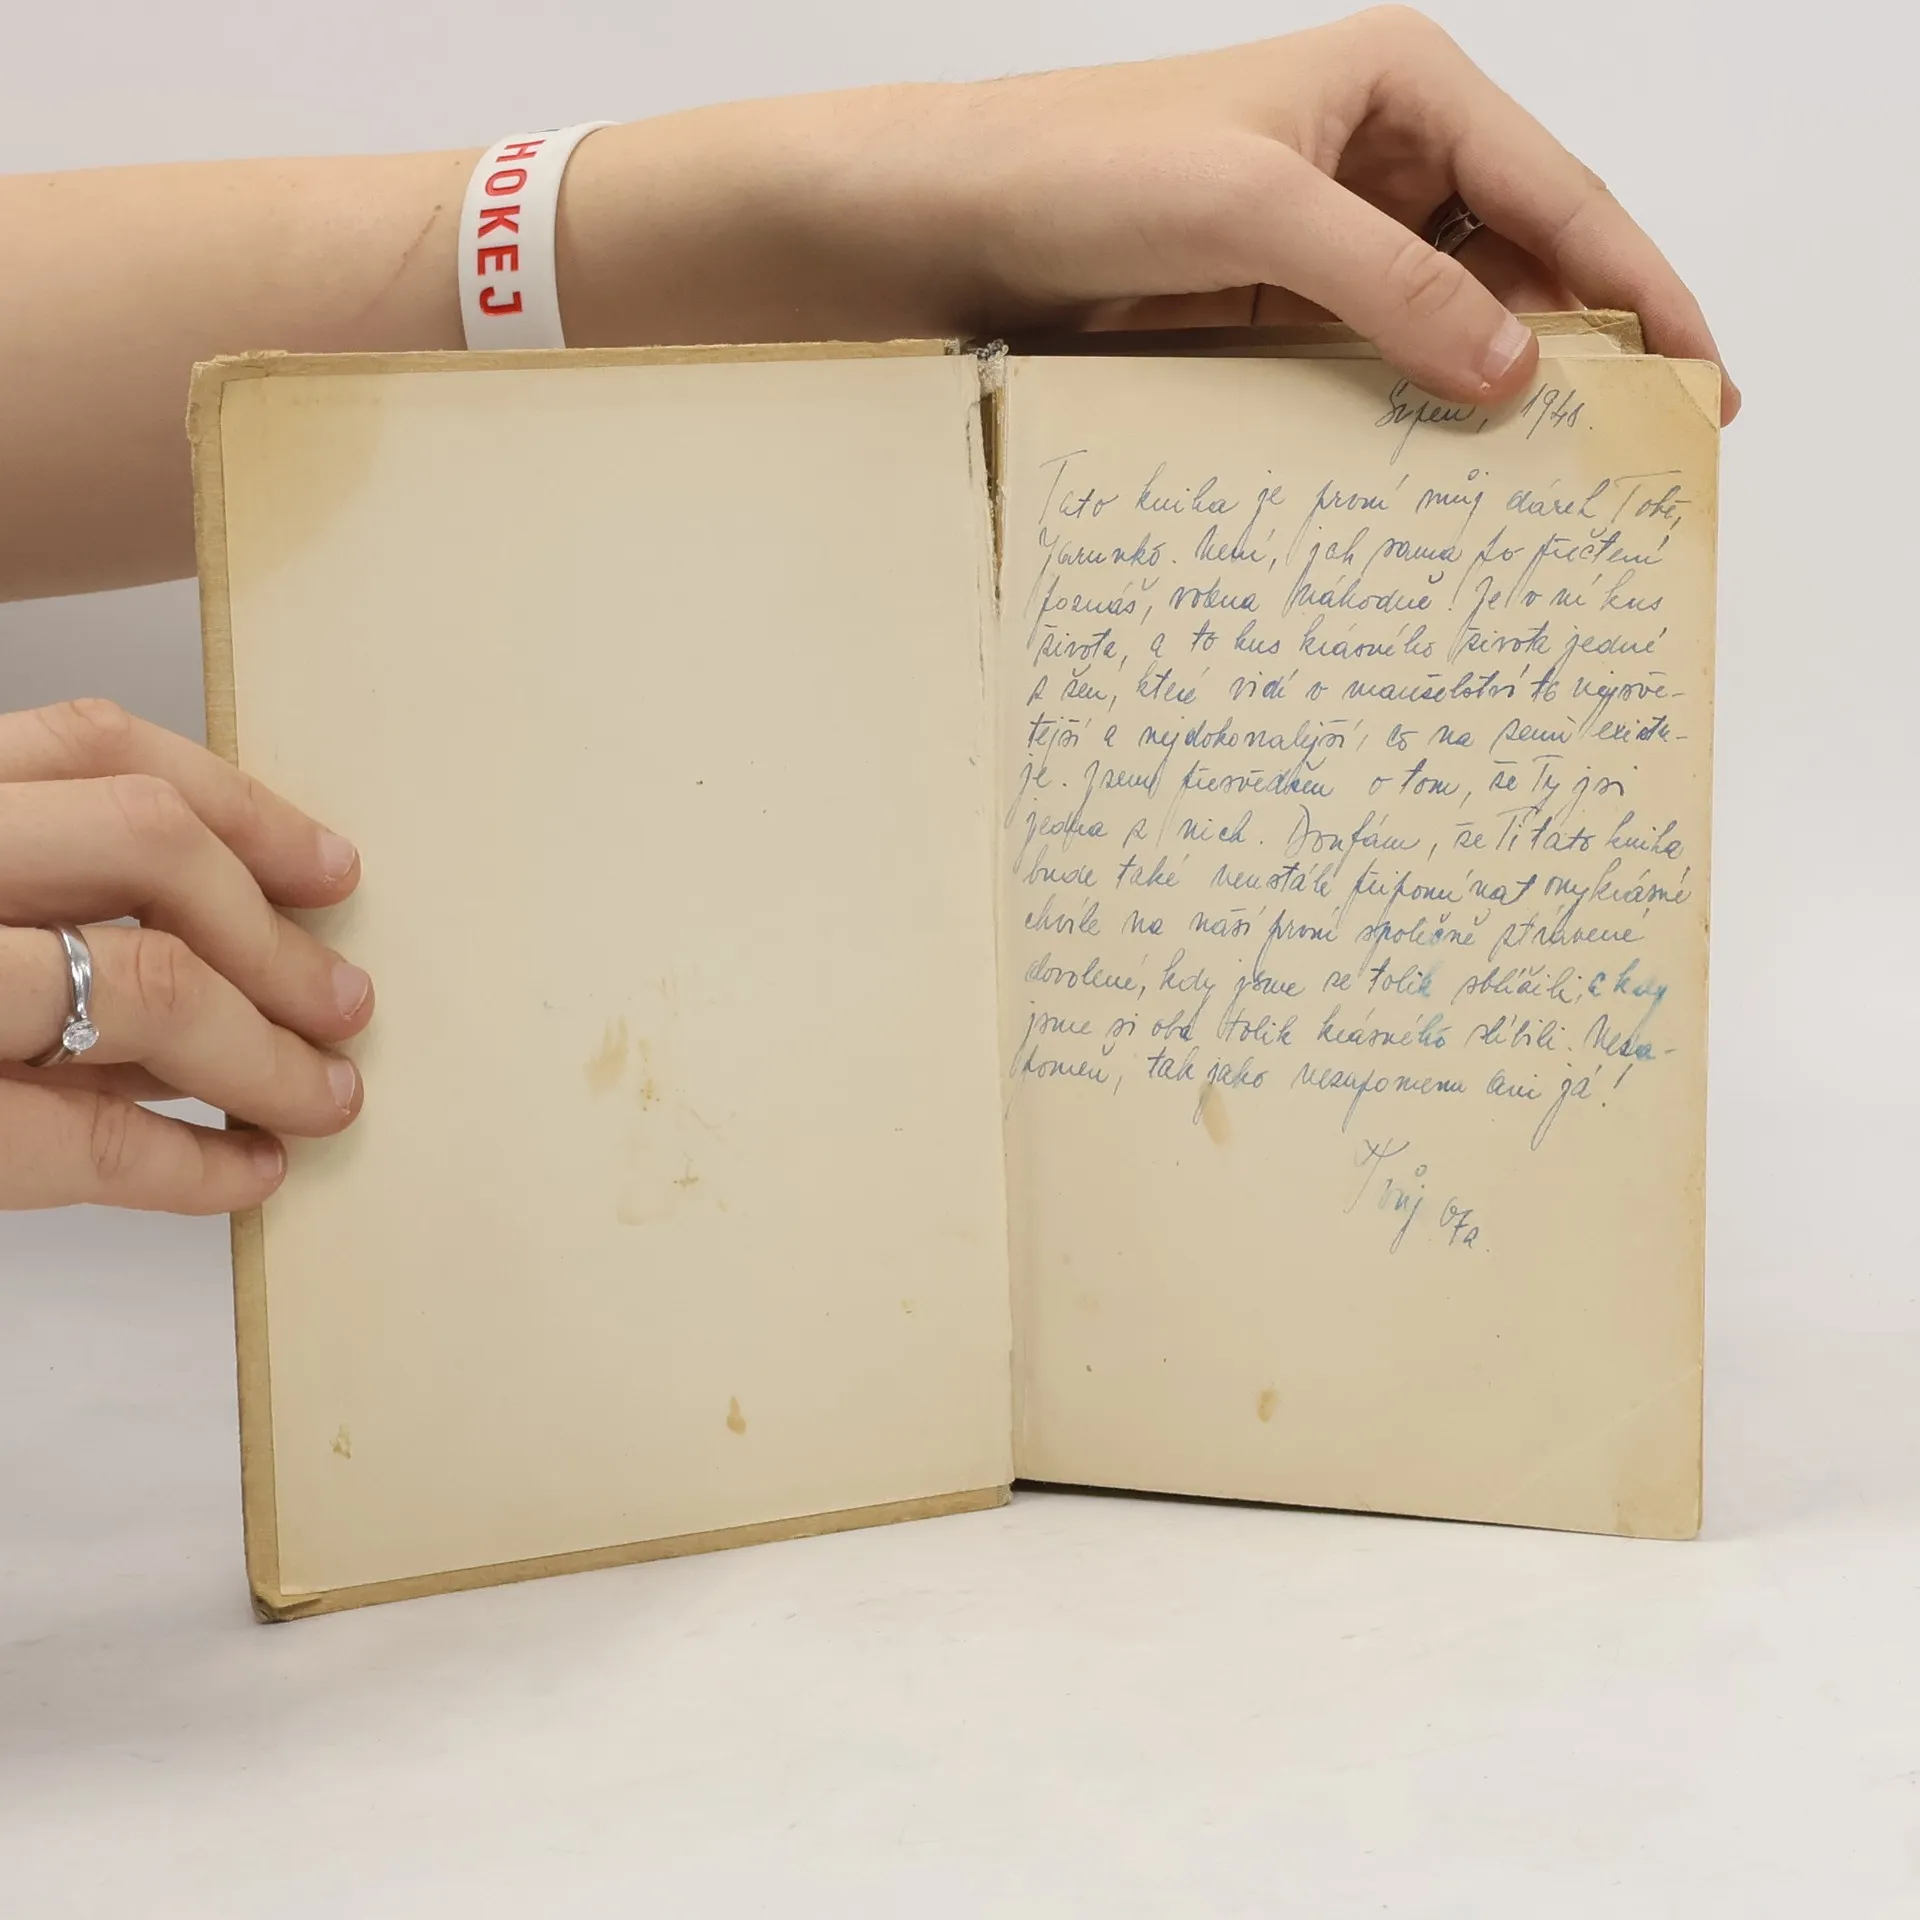 HOKEJ
Srpen, 1948.
Tato kniha je první můj dárek Tobě,
Jarunko. Není, jak sama po přečtení
poznáš, volena náhodně. Je v ní kus
života, a to kus krásného života jedné
z žen, které vidí v manželství to nejsvě-
tější a nejdokonalejší, co na zemi existu-
je. Jsem přesvědčen o tom, že Ty jsi
jedna z nich. Doufám, že Ti tato kniha
bude také neustále připomínat ony krásné
chvíle na naší první společně strávené
dovolené, kdy jsme se tolik sblížili, a kdy
jsme si oba tolik krásného slíbili. Neza-
pomeň, tak jako nezapomenu ani já!
Tvůj